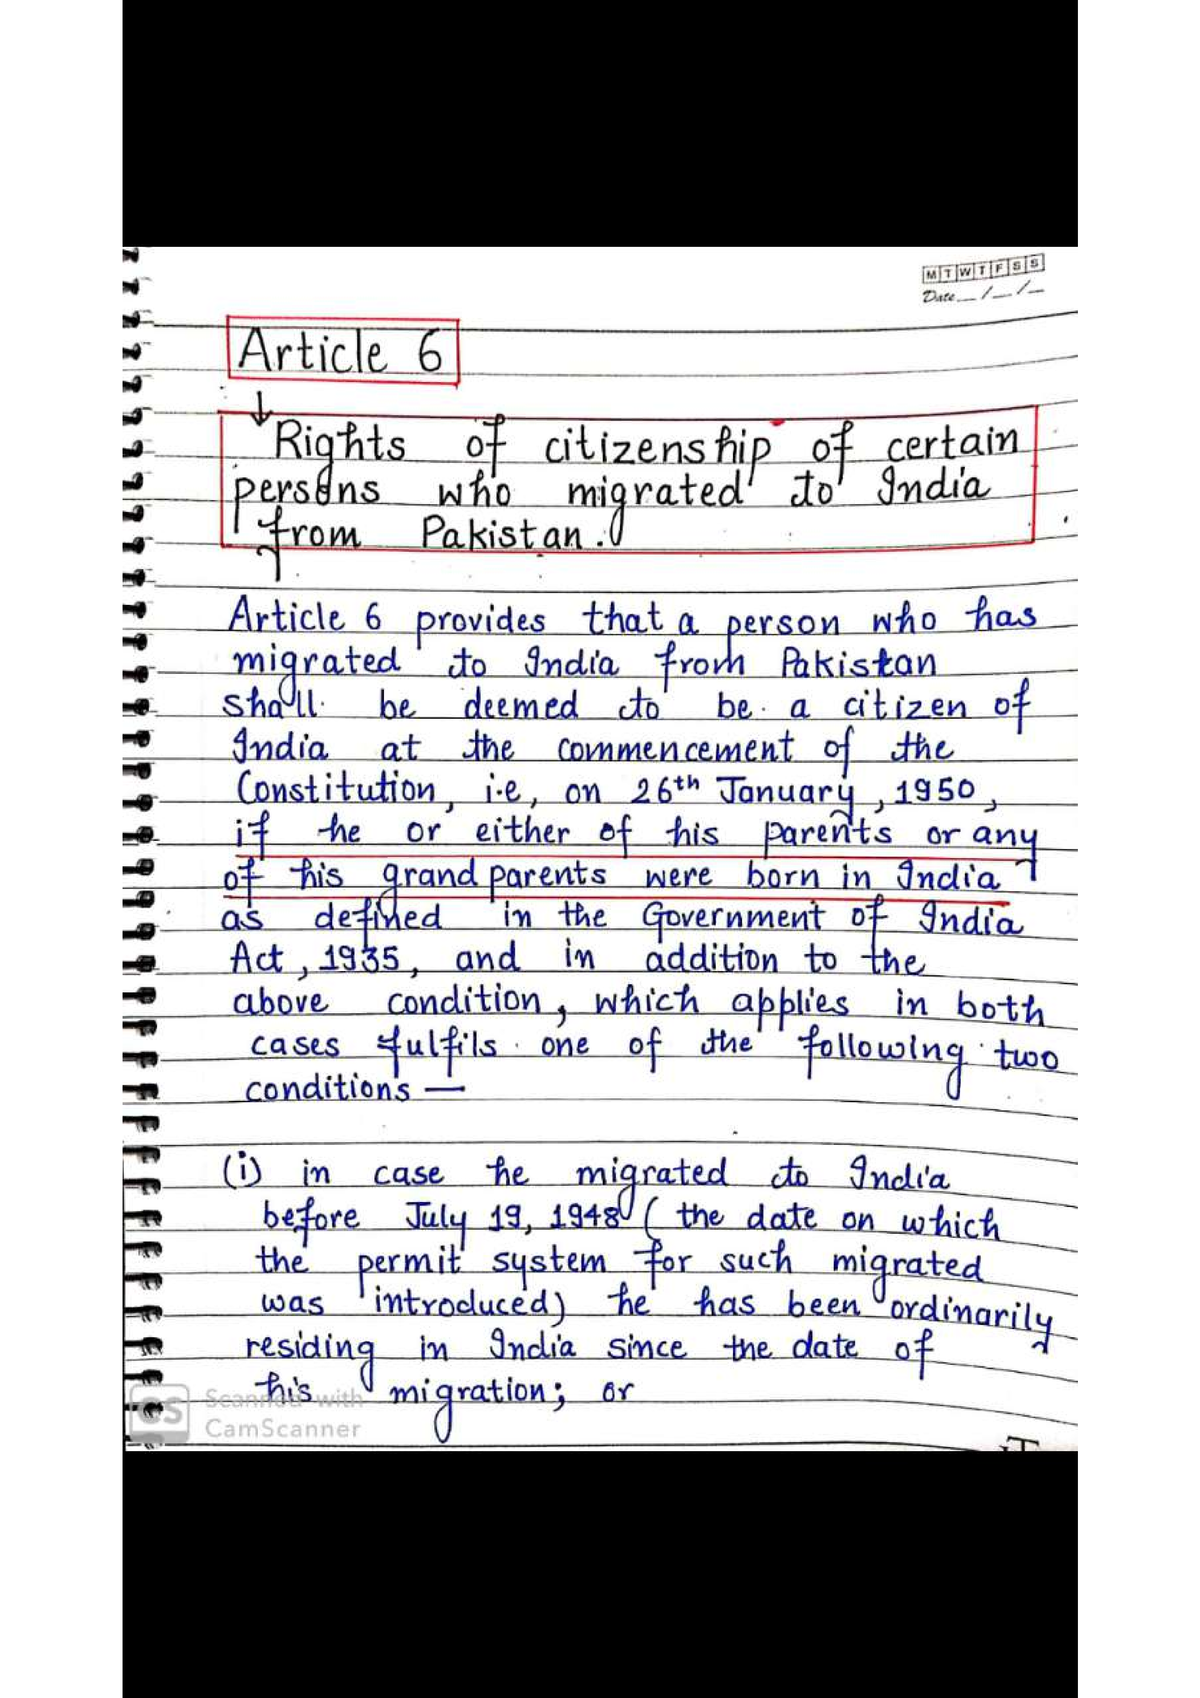 M T W T F S S
Date __/__/__
Article 6
Rights of citizenship of certain
persons who migrated to India
from Pakistan.
Article 6 provides that a person who has
migrated to India from Pakistan
shall be deemed to be a citizen of
India at the commencement of the
Constitution, i.e, on 26th January, 1950,
if he or either of his parents or any
of his grand parents were born in India
as defined in the Government of India
Act, 1935, and in addition to the
above condition, which applies in both
cases fulfils one of the following two
conditions —
(i) in case he migrated to India
before July 19, 1948 ( the date on which
the permit system for such migrated
was introduced) he has been ordinarily
residing in India since the date of
his migration; or
CS Scanned with
CamScanner